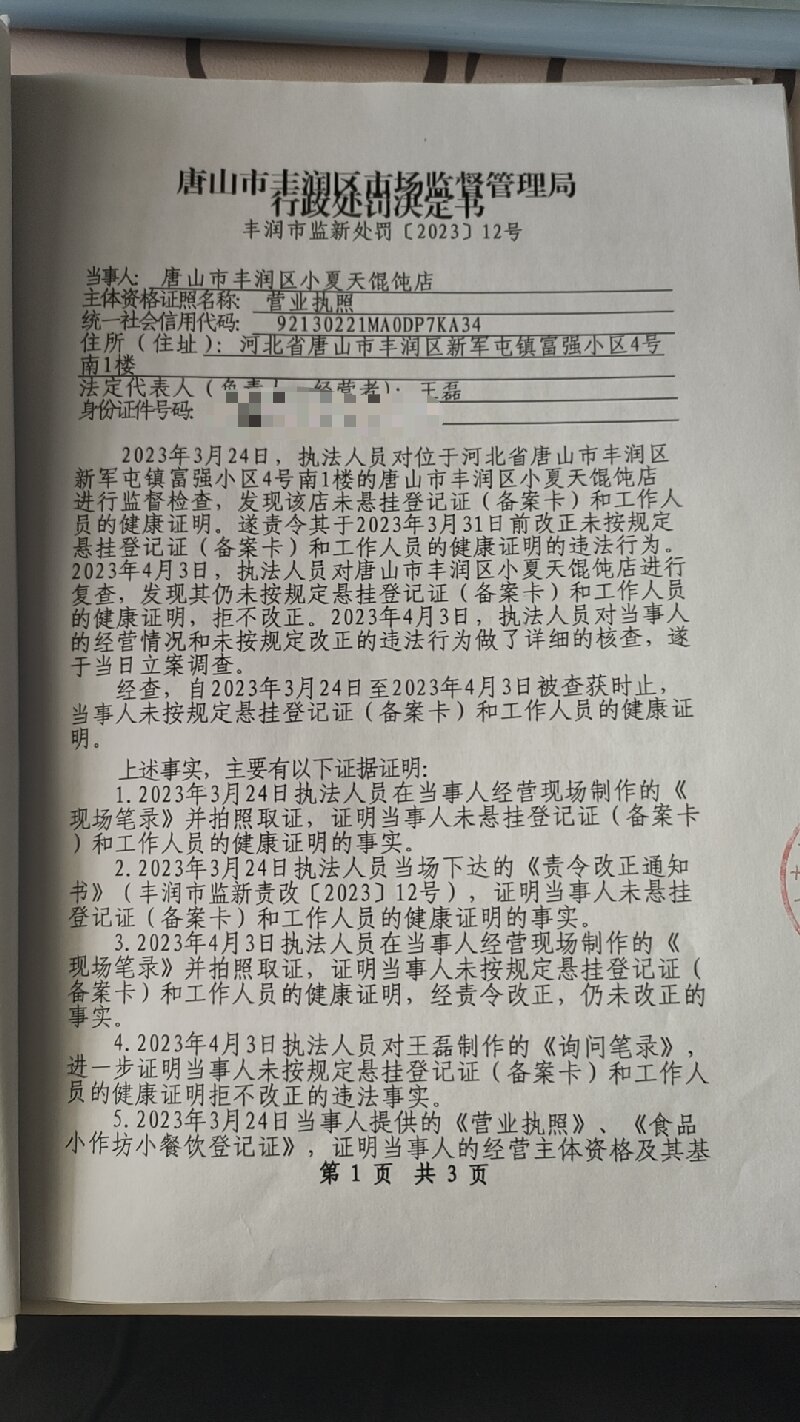 唐山市丰润区市场监督管理局
行政处罚决定书
丰润市监新处罚〔2023〕12号
当事人：唐山市丰润区小夏天馄饨店
主体资格证照名称：营业执照
统一社会信用代码：92130221MA0DP7KA34
住所（住址）：河北省唐山市丰润区新军屯镇富强小区4号
南1楼
法定代表人（负责人、经营者）：王磊
身份证件号码：
2023年3月24日，执法人员对位于河北省唐山市丰润区
新军屯镇富强小区4号南1楼的唐山市丰润区小夏天馄饨店
进行监督检查，发现该店未悬挂登记证（备案卡）和工作人
员的健康证明。遂责令其于2023年3月31日前改正未按规定
悬挂登记证（备案卡）和工作人员的健康证明的违法行为。
2023年4月3日，执法人员对唐山市丰润区小夏天馄饨店进行
复查，发现其仍未按规定悬挂登记证（备案卡）和工作人员
的健康证明，拒不改正。2023年4月3日，执法人员对当事人
的经营情况和未按规定改正的违法行为做了详细的核查，遂
于当日立案调查。
经查，自2023年3月24日至2023年4月3日被查获时止，
当事人未按规定悬挂登记证（备案卡）和工作人员的健康证
明。
上述事实，主要有以下证据证明：
1.2023年3月24日执法人员在当事人经营现场制作的《
现场笔录》并拍照取证，证明当事人未悬挂登记证（备案卡
）和工作人员的健康证明的事实。
2.2023年3月24日执法人员当场下达的《责令改正通知
书》（丰润市监新责改〔2023〕12号），证明当事人未悬挂
登记证（备案卡）和工作人员的健康证明的事实。
3.2023年4月3日执法人员在当事人经营现场制作的《
现场笔录》并拍照取证，证明当事人未按规定悬挂登记证（
备案卡）和工作人员的健康证明，经责令改正，仍未改正的
事实。
4.2023年4月3日执法人员对王磊制作的《询问笔录》，
进一步证明当事人未按规定悬挂登记证（备案卡）和工作人
员的健康证明拒不改正的违法事实。
5.2023年3月24日当事人提供的《营业执照》、《食品
小作坊小餐饮登记证》，证明当事人的经营主体资格及其基
第 1 页 共 3 页